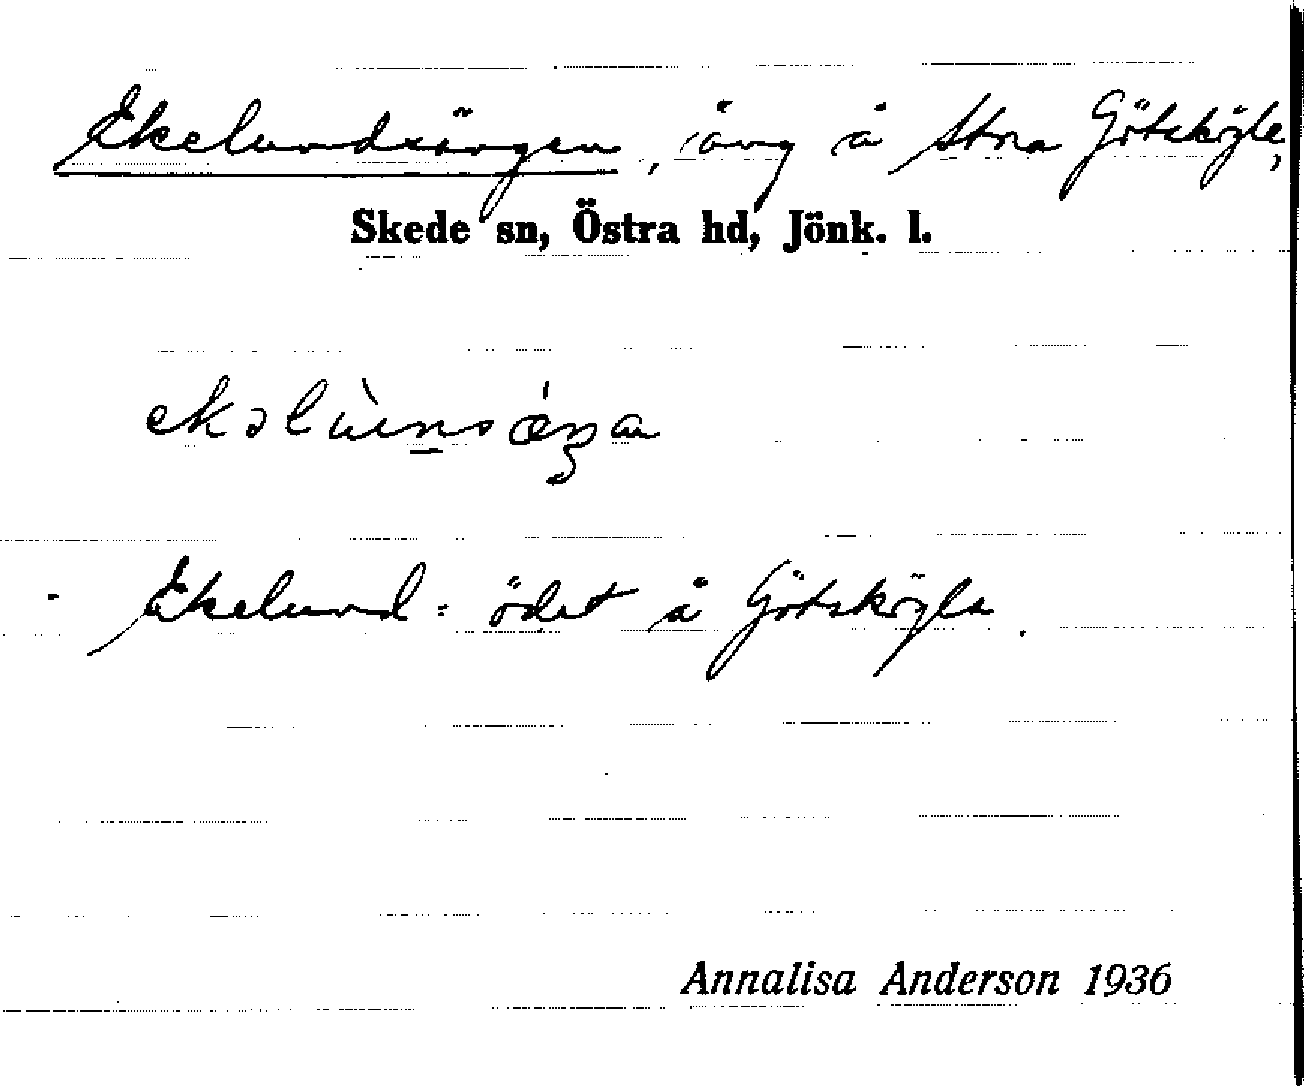 Ekelundsängen, äng å Stora Götsködle,
Skede sn, Östra hd, Jönk. l.
Ekelund = ödet å Götsködle.
Annalisa Anderson 1936